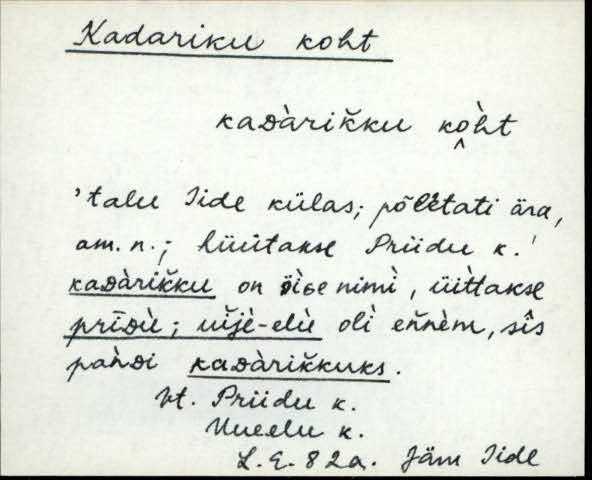 Kadariku koht
kaᴅàrik̆ku kòht
'talu Iide külas; põletati ära,
am. n.; hüütakse Priidu k.'
kaᴅàrik̆ku on öìɢe nimì, üìttakse
prīᴅù; uĭjè-elù olì eňnèm, sîs
pańdi kaᴅàrik̆kuks.
vt. Priidu k.
Uueelu k.
L.E. 82a. Jäm Iide